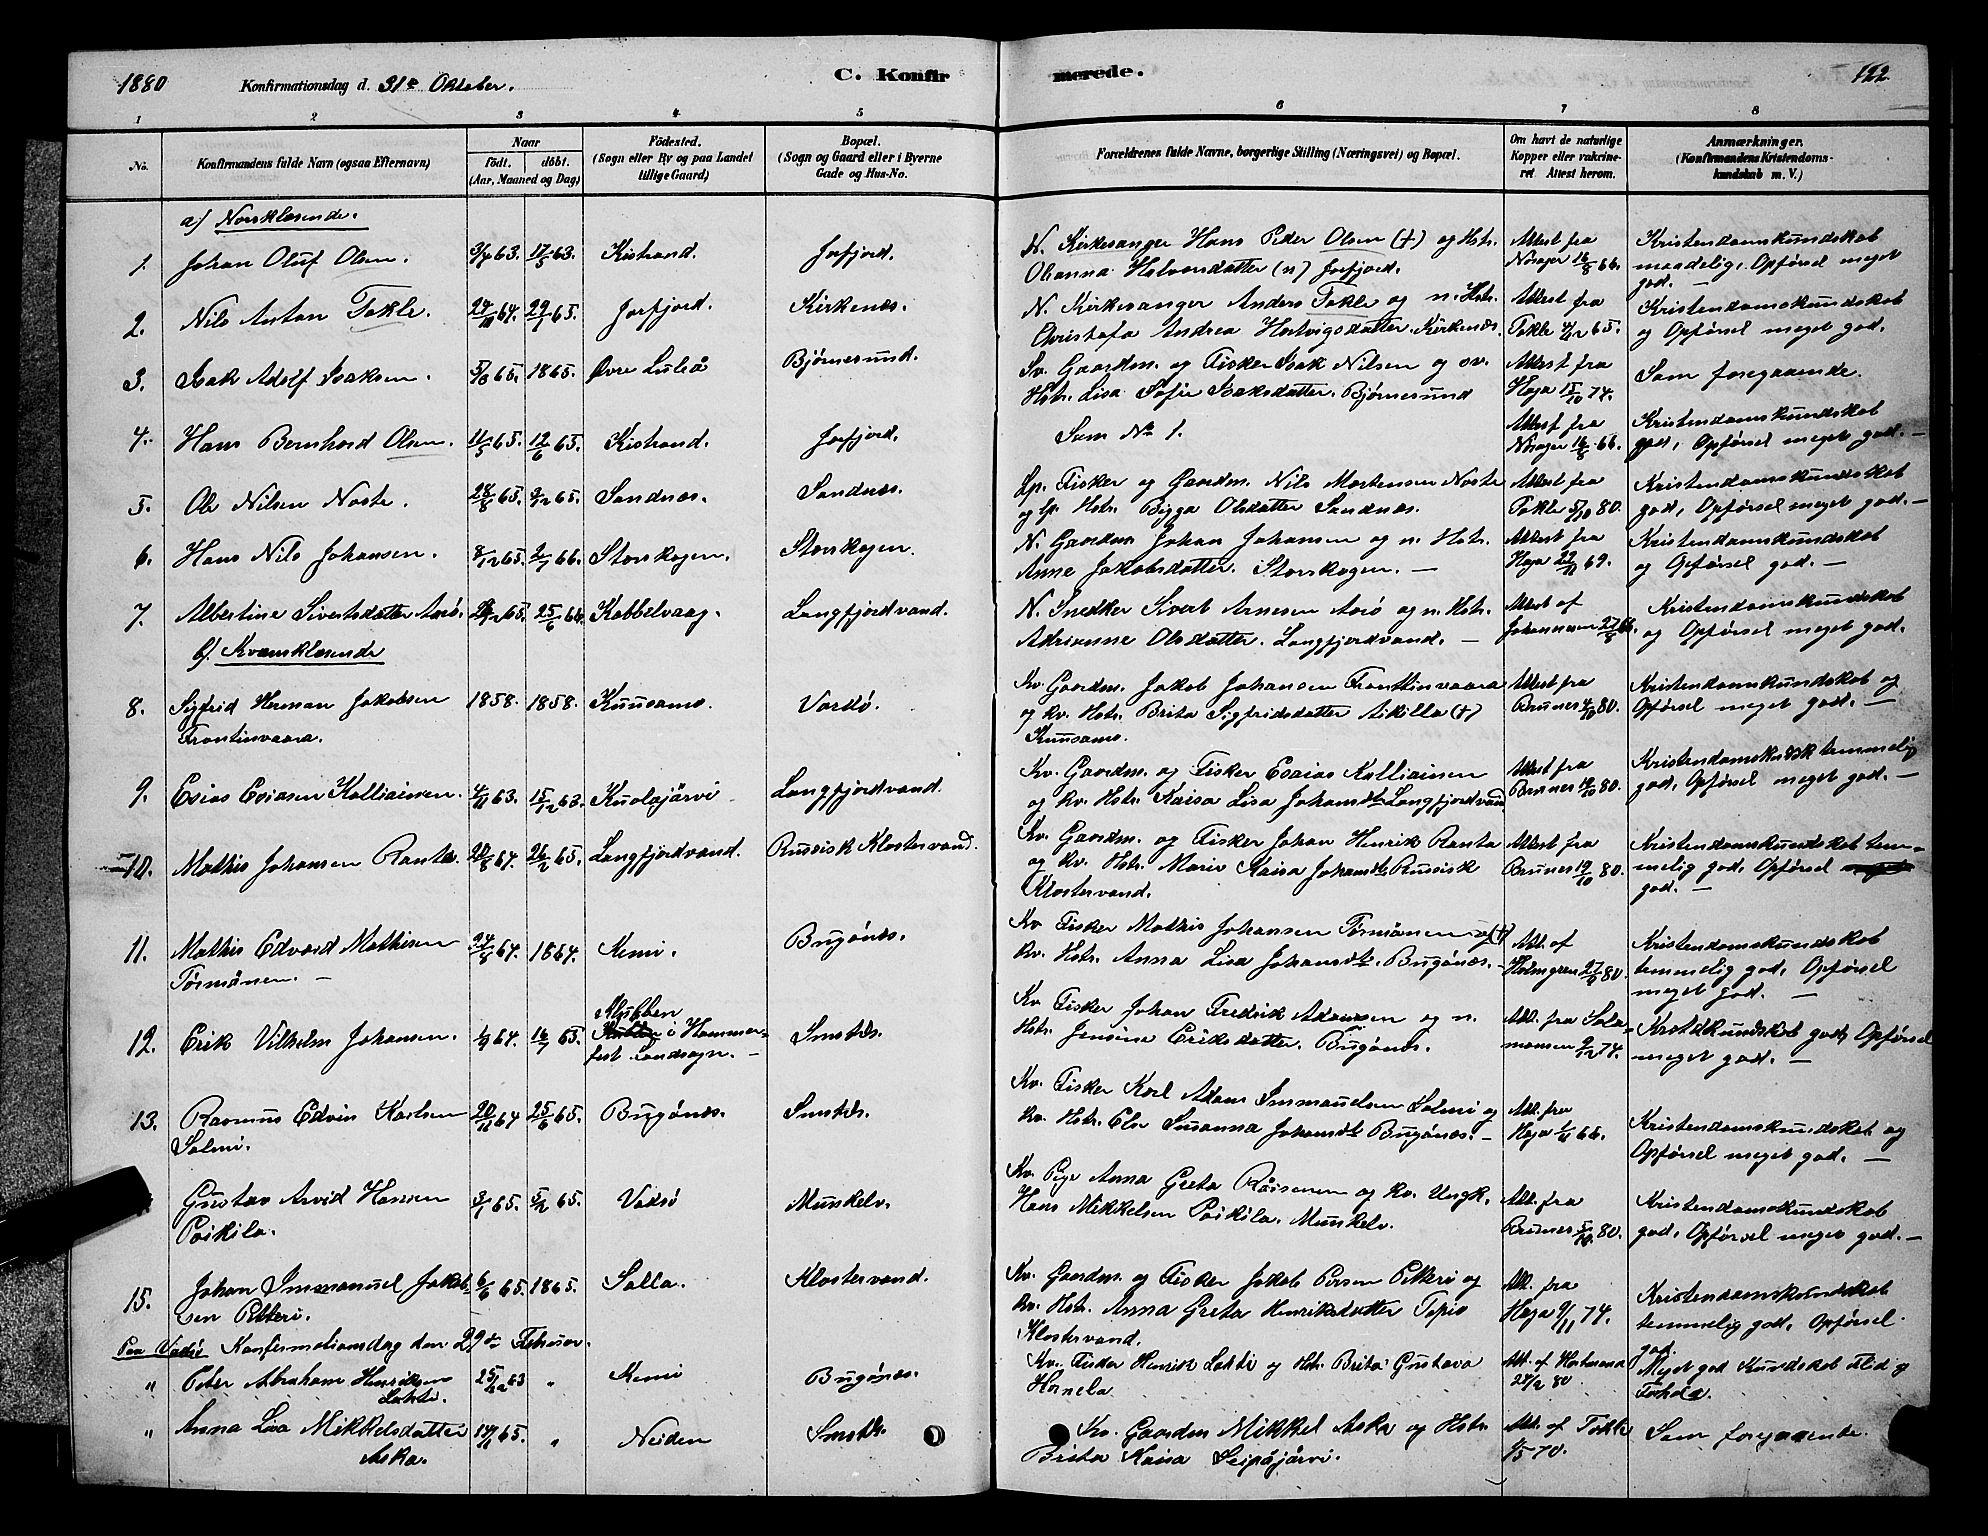 1880 Konfirmationsdag d. 31te Oktober. C. Konfirmerede. 122
1 2 3 4 5 6 7 8
No. Konfirmandens fulde Navn (ogsaa Efternavn) Naar født. døbt. (Aar, Maaned og Dag) Fødested. (Sogn eller By og paa Landet tillige Gaard) Bopæl. (Sogn og Gaard eller i Byerne Gade og Hus-No. Forældrenes fulde Navne, borgerlige Stilling (Næringsvei) og Bopæl. Om havt de naturlige Kopper eller vakcineret Attest herom. Anmærkninger. (Konfirmandens Kristendomskundskab m. V.)
a) Norsklæsende.
1. Johan Oluf Olsen. 3/4 63. 17/5 63. Kistrand. Jarfjord.
N. Kirkesanger Hans Peder Olsen (†) og Hstr.
Ohanna Halvorsdatter (n) Jarfjord.
Attest fra 16/8 66.
Kristendomskundskab
maadelig. Opførsel meget
god. —
2. Nils Anton Tokle. 29/1 65. Jarfjord. Kirkenæs.
N. Kirkesanger Anders Tokle og n. Hstr.
Christofa Andrea Hartvigsdatter. Kirkenæs.
Attest fra
Tokle 4/12 65.
Kristendomskundskab
og Opførsel meget god.
3. Isak Adolf Isaksen. 5/8 65. 1865. Øvre Luleå Bjørnesund.
Sv. Gaardm. og Fisker Isak Nilsen og sv.
Hstr. Lisa Sofie Isaksdatter. Bjørnesund
Attest fra
Haja 15/10 74.
Som foregaaende.
4. Hans Bernhard Olsen. 11/5 65. 12/6 65. Kistrand. Jarfjord.
Som No 1.
Attest fra 16/8 66.
Kristendomskundskab
god, Opførsel meget god. —
5. Ole Nilsen Noste. 65. Sandnæs. Sandnæs.
Lp. Fisker og Gaardm. Nils Mortensen Noste
og lp. Hstr. Bigga Olsdatter Sandnæs.
Attest fra
Tokle 5/10 80.
Kristendomskundskab
god, Opførsel meget god. —
6. Hans Nils Johansen. 8/12 65. 2/1 66. Storskogen. Storskogen.
N. Gaardm Johan Johansen og n. Hstr.
Anne Jakobsdatter. Storskogen. —
Attest fra
Haja 22/11 69.
Kristendomskundskab
og Opførsel god. —
7. Albertine Sivertsdatter Arøs. 65. 25/6 66. Kobbelvaag. Langfjordvand.
N. Snedker Sivert Arnesen Arø og n. Hstr.
Adrianne Olsdatter. Langfjordvand. —
Attest af
Johannesen 27/8 66.
Kristendomskundskab
og Opførsel meget god.
b) Kvænsklæsende
8. Sigfrid Herman Jakobsen
Frontinvaara. 1858. 1858. Kuusamo. Vardø.
Kv. Gaardm. Jakob Johansen Fronttinvaara
og kv. Hstr. Brita Sigfridsdatter Aikilla (†)
Kuusamo.
Attest fra
Brunes 4/10 80.
Kristendomskundskab og
Opførsel meget god. —
9. Esias Esiasen Kalliainen. 4/11 63. 15/12 63. Kuolajärvi Langfjordvand.
Kv. Gaardm. og Fisker Esaias Kalliainen
og kv. Hstr. Kaisa Lisa Johansdtr Langfjordvand
Attest fra
Brunes 19/10 80.
Kristendomskdsk temmelig
god, Opførsel meget god. —
10. Mathis Johansen Ranta. 64. 26/2 65. Langfjordvand. Russisk Klostervand.
Kv. Gaardm. og Fisker Johan Henrik Ranta
og kv. Hstr. Marie Kaisa Johansdtr Russisk
Klostervand.
Attest fra
Brunes 19/10 80.
Kristendomskundskab temmelig
god, Opførsel
god. —
11. Mathis Edvard Mathisen
Törmänen. — 24/8 64. 1864. Kemi. Bugønæs.
Kv. Fisker Mathis Johansen Törmänen og (†)
kv. Hstr. Anna Lisa Johansdtr. Bugønæs. —
Att. af
Holmgren 27/9 80.
Kristendomskundskab
temmelig god, Opførsel
meget god. —
12. Erik Vilhelm Johansen. 1/9 64. 16/7 65. Klubben i Hammerfest
Landsogn. — Smstds.
Kv. Fisker Johan Fredrik Adamsen og n.
Hstr. Jensine Eriksdatter. Bugønæs.
Att. fra Salamonsen
9/12 74.
Kristdkundskab god, Opførsel
meget god. —
13. Rasmus Edvin Karlsen
Salmi. 20/11 64 25/6 65. Bugønæs. Smstds.
Kv. Fisker Karl Adam Immanuelsen Salmi og
kv. Hstr. Else Susanna Johansdtr Bugønæs. —
Att. fra
Haja 66.
Kristendomskundskab og
Opførsel meget god. —
Gustav Arvid Hansen
Poikila. 3/1 65. 5/2 65. Vadsø Munkelv.
Kv. Pige Anna Greta Räisenen og kv. Ungk.
Hans Mikkelsen Poikila. Munkelv.
Att. fra
Brunes 5/10 80.
Kristendomskundskab
god, Opførsel meget god. —
15. Johan Immanuel Jakobsen
Petteri. 6/6 65. 1865. Salla. Klostervand.
Kv. Gaardm. og Fisker Jakob Persen Petteri og
kv. Hstr. Anna Greta Henriksdatter Tapio
Klostervand.
Att. fra
Haja 9/11 74.
Kristendomskundskab
temmelig god, Opførsel
god.
Paa Vadsø Konfirmationsdag den 29de Februar.
" Peter Abraham Henriksen
Lahti. 25/12 63 " Kemi Bugønæs.
Kv. Fisker Henrik Lahti og Hstr. Brita Gustava
Hannela.
Att. af Hartmand
24/2 80
Meget god Kundskab Flid og
Forhold.
" Anna Lisa Mikkelsdatter
Aska. 19/11 65. " Neiden Smstds.
Kv. Gaardm Mikkel Aska og Hstr.
Brita Kaisa Seipäjärvi.
Att. af Tokle
1/5 70.
Som foregaaende.